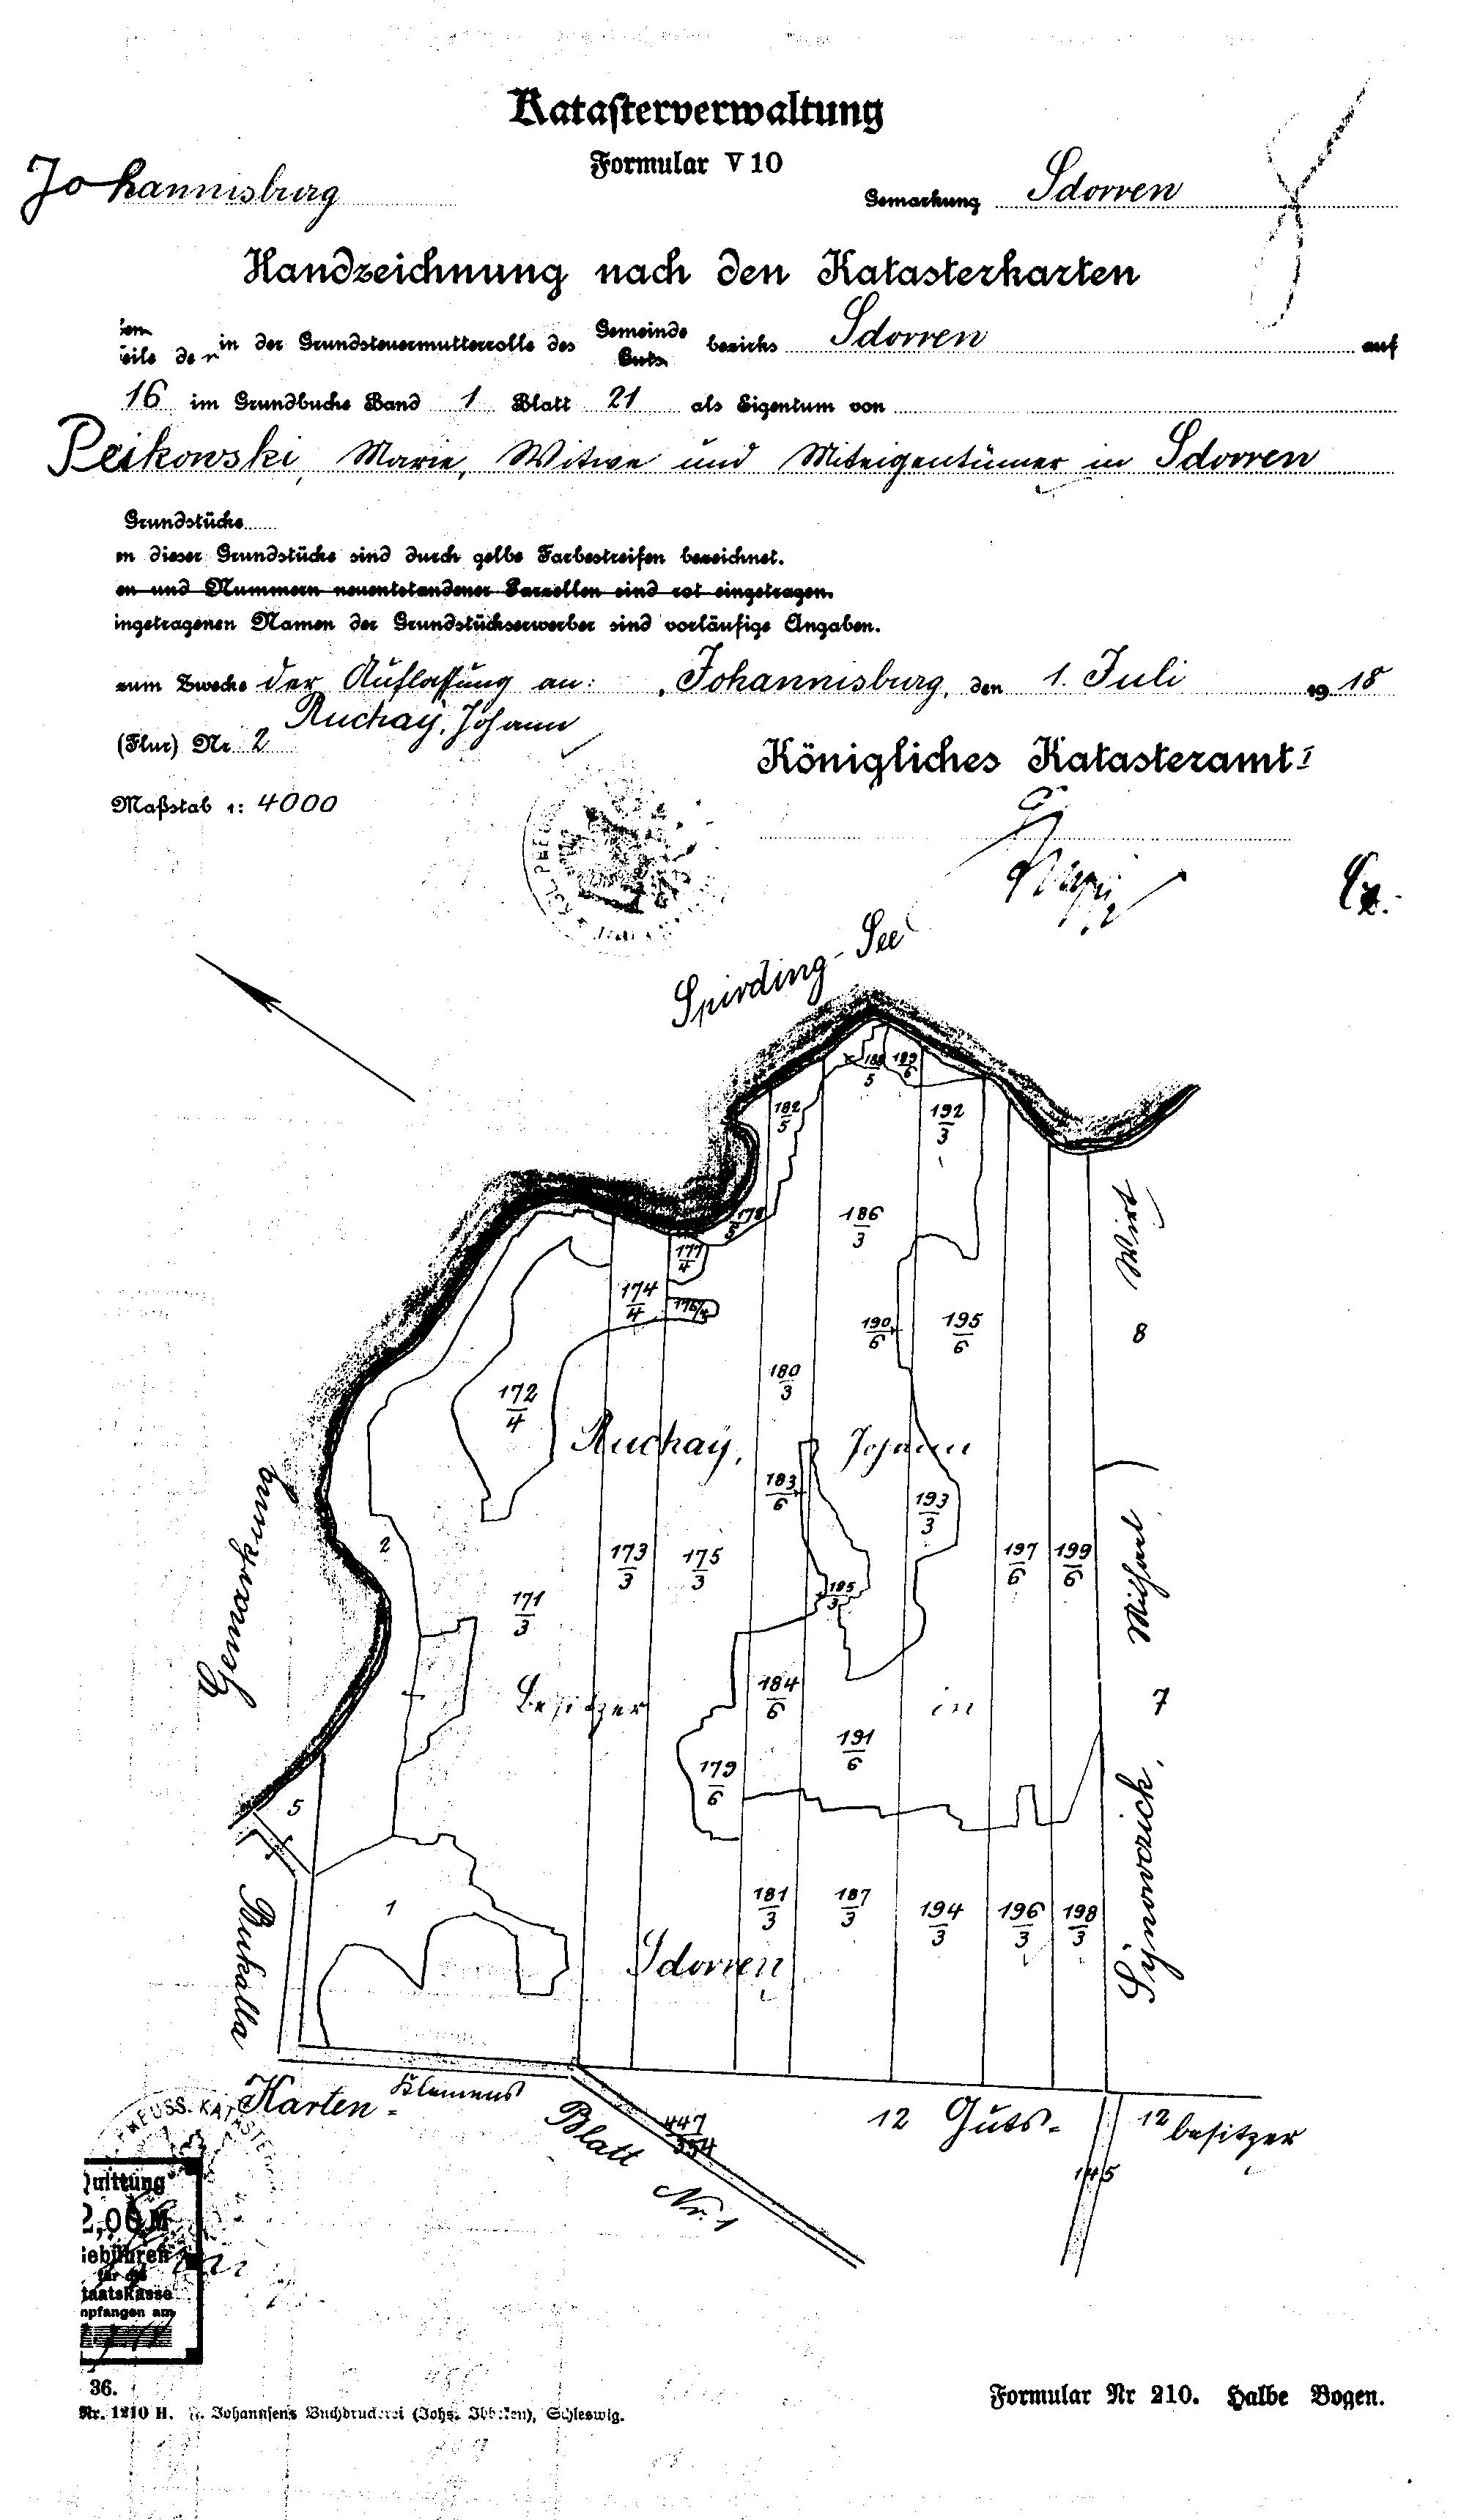 Katasterverwaltung
Formular V 10
Johannisburg
Gemarkung Sdorren
Handzeichnung nach den Katasterkarten
eile der in der Grundsteuermutterrolle des Gemeinde Guts bezirks Sdorren auf
16 im Grundbuche Band 1 Blatt 21 als Eigentum von
Peikowski, Marie, Witwe und Miteigentümer in Sdorren
Grundstücke
en dieser Grundstücke sind durch gelbe Farbestreifen bezeichnet.
en und Nummern neuentstandener Parzellen sind rot eingetragen.
ingetragenen Namen der Grundstückserwerber sind vorläufige Angaben.
zum Zwecke der Auflassung an: Johannisburg, den 1. Juli 1918
Ruchay, Johann
(Flur) Nr. 2
Königliches Katasteramt I
Maßstab 1: 4000
Spirding-See
188/5 189/6
182/5 192/3
178/5 186/3
177/4
174/4 176/4
190/6 195/6
8 Wirt
180/3
172/4
Ruchay, Johann
183/6
193/3
2
173/3 175/3 197/6 199/6
171/3 185/3
Gemarkung
184/6
Besitzer in
7
191/6
179/6
5
Synowzick, Michael
1
181/3 187/3 194/3 196/3 198/3
Sdorren
Bukalla
Karten- Klemens
Blatt Nr. 1
447/554
12 Guts- 12 besitzer
145
PREUSS. KATASTER
Quittung
2,00 M
Gebühren
für die
taatskasse
mpfangen am
36.
Nr. 1210 H. Johannsens Buchdruckerei (Johs. Ibbeken), Schleswig.
Formular Nr 210. Halbe Bogen.